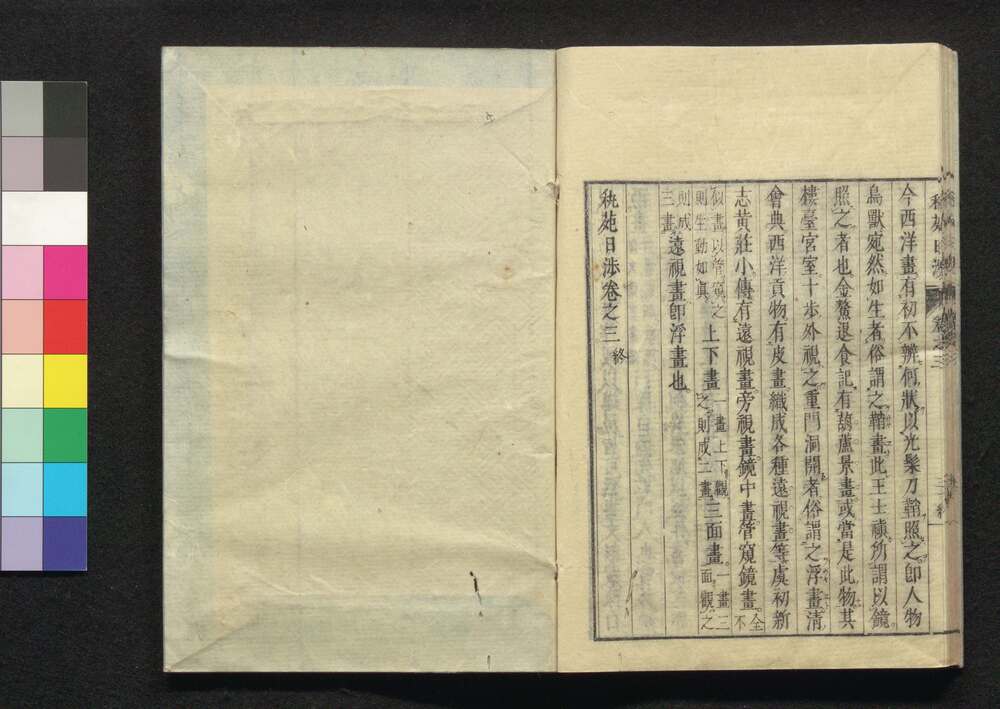 今西洋畫有初不辨何狀以光髹刀鞘照之卽人物
鳥獸宛然如生者俗謂之鞘畫此王士禛所謂以鏡
照之者也金鰲退食記有葫蘆景畫或當是此物其
樓臺宮室十步外視之重門洞開者俗謂之浮畫淸
會典西洋貢物有皮畫織成各種遠視畫等虞初新
志黃莊小傳有遠視畫旁視畫鏡中畫管窺鏡畫全不
似畫以管窺之則生動如眞上下畫一畫上下觀之則成二畫三面畫一畫三面觀之
則成三畫遠視畫卽浮畫也
秇苑日涉卷之三終
秇苑日涉
卷之三